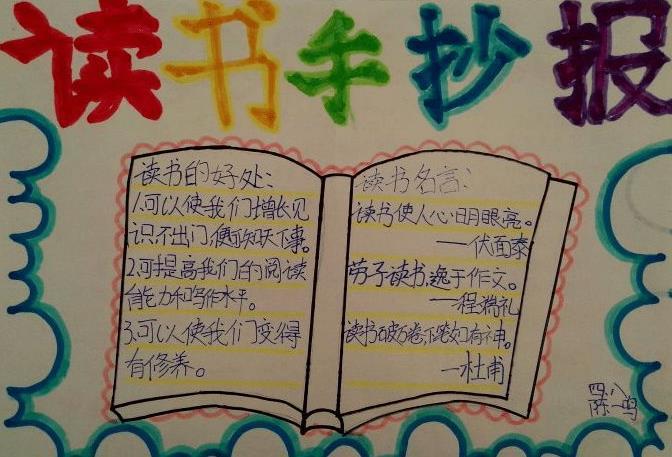 读书手抄报
读书的好处：
1.可以使我们增长见
识,不出门,便可知天下事。
2.可提高我们的阅读
能力和写作水平。
3.可以使我们变得
有修养。
读书名言：
读书使人心明眼亮。
——伏面泰
劳于读书,逸于作文。
—程端礼
读书破万卷,下笔如有神。
—杜甫
四、八
陈一鸣